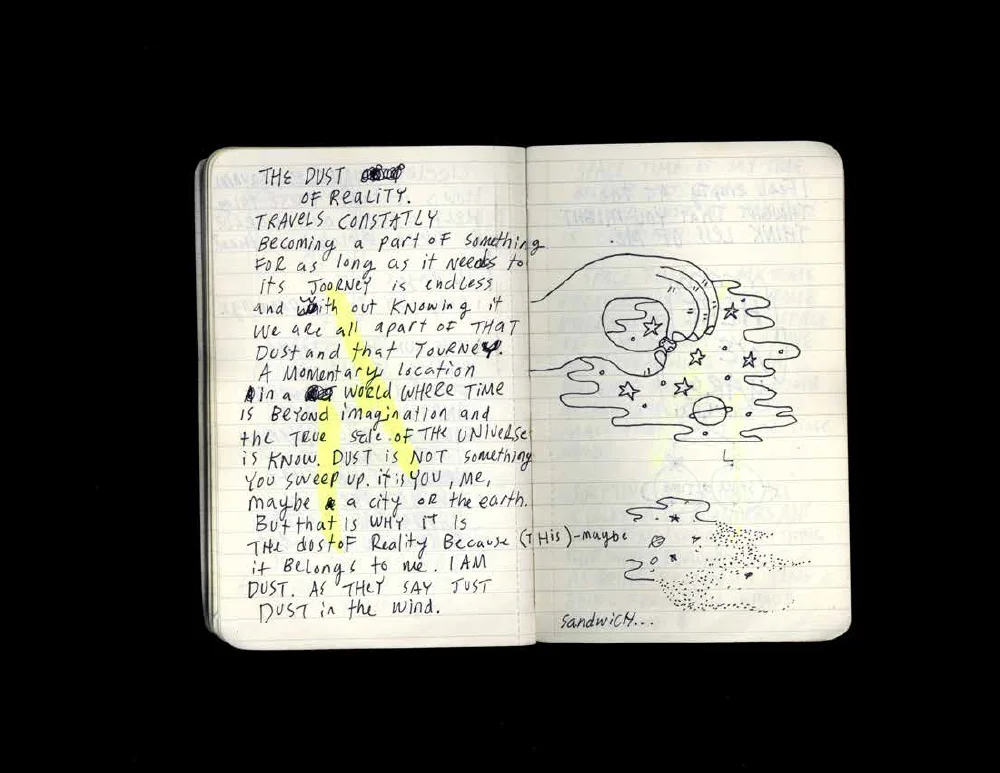 THE DUST
OF REALITY.
TRAVELS CONSTATLY
Becoming a part of something
FOR as long as it needs to
its JOORNEY is endless
and with out Knowing it
We are all apart of THAT
Dust and that JOURNEY.
A Momentary location
in a WORLD WHERE TIME
is BEYOND imagination and
the TRUE sale of THE UNIVERSE
is KNOW. DUST is NOT something
YOU SWEEP UP. it is YOU, ME,
maybe a city OR the earth.
But that IS WHY IT IS
THE dost of Reality Because (THis)-maybe
it Belongs to me. I AM
DUST. AS THEY SAY JUST
DUST in the wind.
Sandwich...